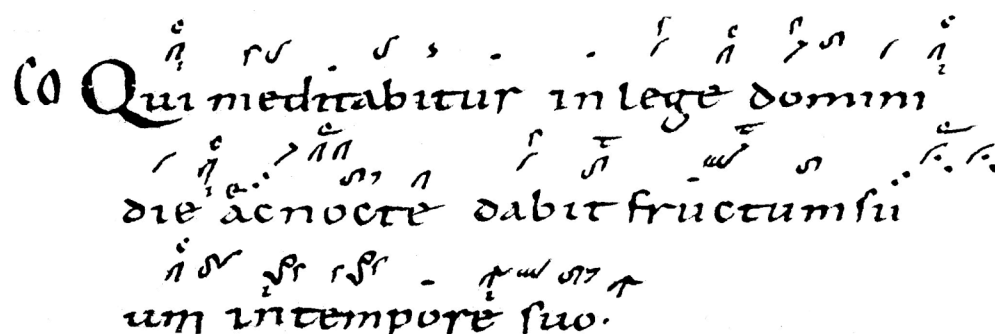 CO Qui meditabitur in lege domini
die ac nocte dabit fructum su
um in tempore suo.